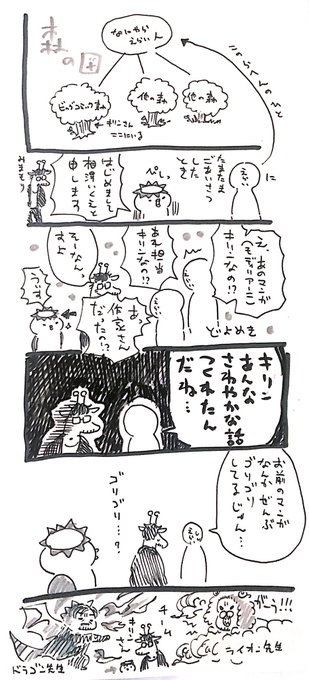 森の図
なにやら
えらい人
ビッグコミック森
他の森
他の森
キリンさん
ここにいる
に
たまたま
ごあいさつ
した
とき
えらい
ぺし
はじめまして
相澤いくえと
申します
みまもり
え、あのマンガ
(モディリアーニ)
キリンなの!?
あれ担当
キリンなの!?
えらい
どよめき
そーなん
すよ
あ
作家さん
だったの!?
うぃす
キリン
あんなの
さわやかな話
つくれたん
だね…
お前のマンガ
なんかぜんぶ
ゴリゴリ
してるじゃん…
えらい
ゴリ
ゴリ…?
がう!!!
ライオン先生
チーム
キリンさん
ドラゴン先生